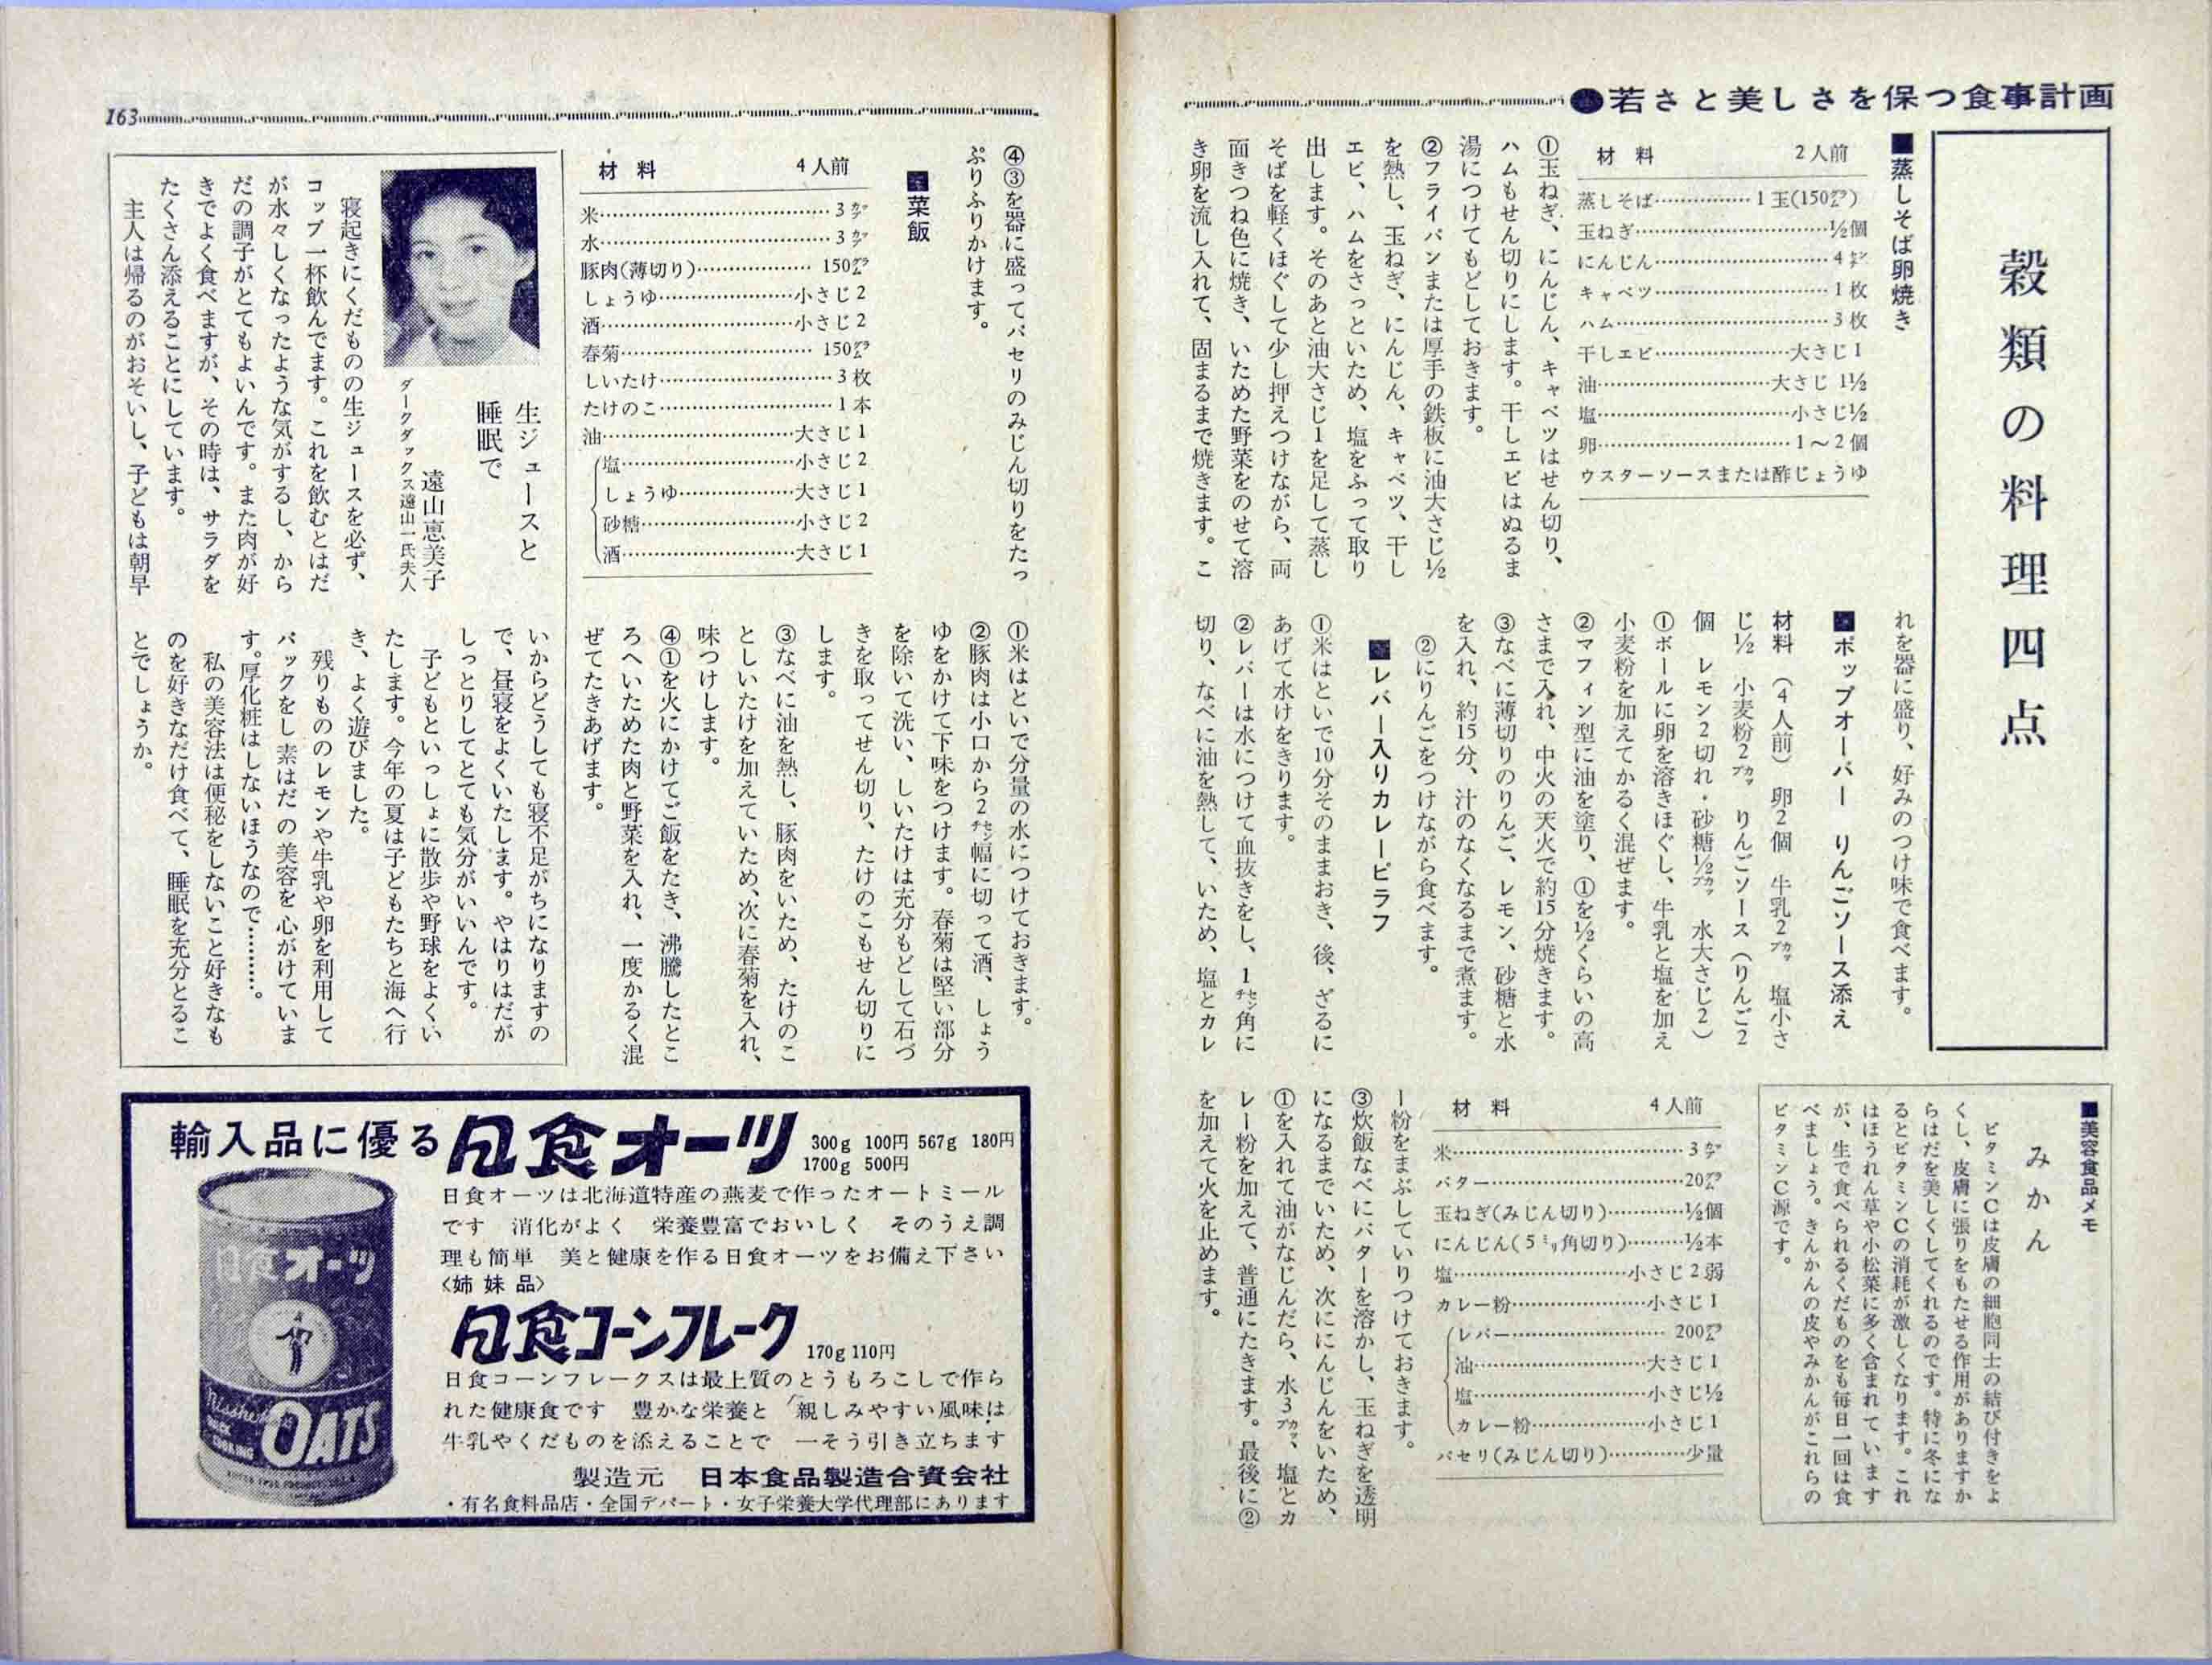 ●若さと美しさを保つ食事計画
穀類の料理四点
■蒸しそば卵焼き
材料 2人前
蒸しそば……………1玉(150㌘)
玉ねぎ…………………………½個
にんじん……………………4㌢
キャベツ……………………1枚
ハム…………………………3枚
干しエビ………………大さじ1
油……………………大さじ 1½
塩………………………小さじ½
卵………………………1〜2個
ウスターソースまたは酢じょうゆ
①玉ねぎ、にんじん、キャベツはせん切り、
ハムもせん切りにします。干しエビはぬるま
湯につけてもどしておきます。
②フライパンまたは厚手の鉄板に油大さじ½
を熱し、玉ねぎ、にんじん、キャベツ、干し
エビ、ハムをさっといため、塩をふって取り
出します。そのあと油大さじ1を足して蒸し
そばを軽くほぐして少し押えつけながら、両
面きつね色に焼き、いためた野菜をのせて溶
き卵を流し入れて、固まるまで焼きます。こ
れを器に盛り、好みのつけ味で食べます。
■ポップオーバー りんごソース添え
材料 (4人前) 卵2個 牛乳2㌍ 塩小さ
じ½ 小麦粉2㌍ りんごソース(りんご2
個 レモン2切れ・砂糖½㌍ 水大さじ2)
①ボールに卵を溶きほぐし、牛乳と塩を加え
小麦粉を加えてかるく混ぜます。
②マフィン型に油を塗り、①を½くらいの高
さまで入れ、中火の天火で約15分焼きます。
③なべに薄切りのりんご、レモン、砂糖と水
を入れ、約15分、汁のなくなるまで煮ます。
②にりんごをつけながら食べます。
■レバー入りカレーピラフ
①米はといで10分そのままおき、後、ざるに
あげて水けをきります。
②レバーは水につけて血抜きをし、1㌢角に
切り、なべに油を熱して、いため、塩とカレ
ー粉をまぶしていりつけておきます。
材料 4人前
米……………………………3㌍
バター………………………20㌘
玉ねぎ(みじん切り)…………½個
にんじん(5㍉角切り)………½本
塩……………………小さじ2弱
カレー粉………………小さじ1
レバー…………………200㌘
油……………………大さじ1
塩……………………小さじ½
カレー粉……………小さじ1
パセリ(みじん切り)…………少量
③炊飯なべにバターを溶かし、玉ねぎを透明
になるまでいため、次ににんじんをいため、
①を入れて油がなじんだら、水3㌍、塩とカ
レー粉を加えて、普通にたきます。最後に②
を加えて火を止めます。
■美容食品メモ
みかん
ビタミンCは皮膚の細胞同士の結び付きをよ
くし、皮膚に張りをもたせる作用がありますか
らはだを美しくしてくれるのです。特に冬にな
るとビタミンCの消耗が激しくなります。これ
はほうれん草や小松菜に多く含まれています
が、生で食べられるくだものをも毎日一回は食
べましょう。きんかんの皮やみかんがこれらの
ビタミンC源です。
163
④③を器に盛ってパセリのみじん切りをたっ
ぷりふりかけます。
■菜飯
材料 4人前
米……………………………3㌍
水……………………………3㌍
豚肉(薄切り)……………150㌘
しょうゆ………………小さじ2
酒………………………小さじ2
春菊………………………150㌘
しいたけ……………………3枚
たけのこ……………………1本
油………………………大さじ1
塩……………………小さじ2
しょうゆ……………大さじ1
砂糖…………………小さじ2
酒……………………大さじ1
①米はといで分量の水につけておきます。
②豚肉は小口から2㌢幅に切って酒、しょう
ゆをかけて下味をつけます。春菊は堅い部分
を除いて洗い、しいたけは充分もどして石づ
きを取ってせん切り、たけのこもせん切りに
します。
③なべに油を熱し、豚肉をいため、たけのこ
としいたけを加えていため、次に春菊を入れ、
味つけします。
④①を火にかけてご飯をたき、沸騰したとこ
ろへいためた肉と野菜を入れ、一度かるく混
ぜてたきあげます。
生ジュースと
睡眠で
遠山恵美子
ダークダックス遠山一氏夫人
寝起きにくだものの生ジュースを必ず、
コップ一杯飲んでます。これを飲むとはだ
が水々しくなったような気がするし、から
だの調子がとてもよいんです。また肉が好
きでよく食べますが、その時は、サラダを
たくさん添えることにしています。
主人は帰るのがおそいし、子どもは朝早
いからどうしても寝不足がちになりますの
で、昼寝をよくいたします。やはりはだが
しっとりしてとても気分がいいんです。
子どもといっしょに散歩や野球をよくい
たします。今年の夏は子どもたちと海へ行
き、よく遊びました。
残りもののレモンや牛乳や卵を利用して
パックをし素はだの美容を心がけていま
す。厚化粧はしないほうなので………。
私の美容法は便秘をしないこと好きなも
のを好きなだけ食べて、睡眠を充分とるこ
とでしょうか。
輸入品に優る 日食オーツ 300g 100円 567g 180円
1700g 500円
日食オーツは北海道特産の燕麦で作ったオートミール
です 消化がよく 栄養豊富でおいしく そのうえ調
理も簡単 美と健康を作る日食オーツをお備え下さい
〈姉妹品〉
日食コーンフレーク 170g 110円
日食コーンフレークスは最上質のとうもろこしで作ら
れた健康食です 豊かな栄養と 親しみやすい風味は
牛乳やくだものを添えることで 一そう引き立ちます
製造元 日本食品製造合資会社
・有名食料品店・全国デパート・女子栄養大学代理部にあります
日食オーツ
Nisshoku's
QUICK
COOKING
OATS